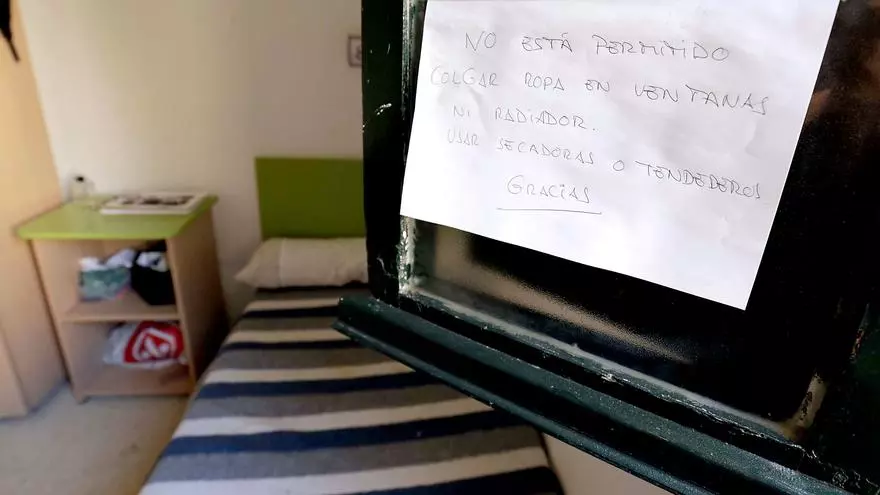 NO ESTÁ PERMITIDO
COLGAR ROPA EN VENTANAS
NI RADIADOR.
USAR SECADORAS O TENDEDEROS
GRACIAS